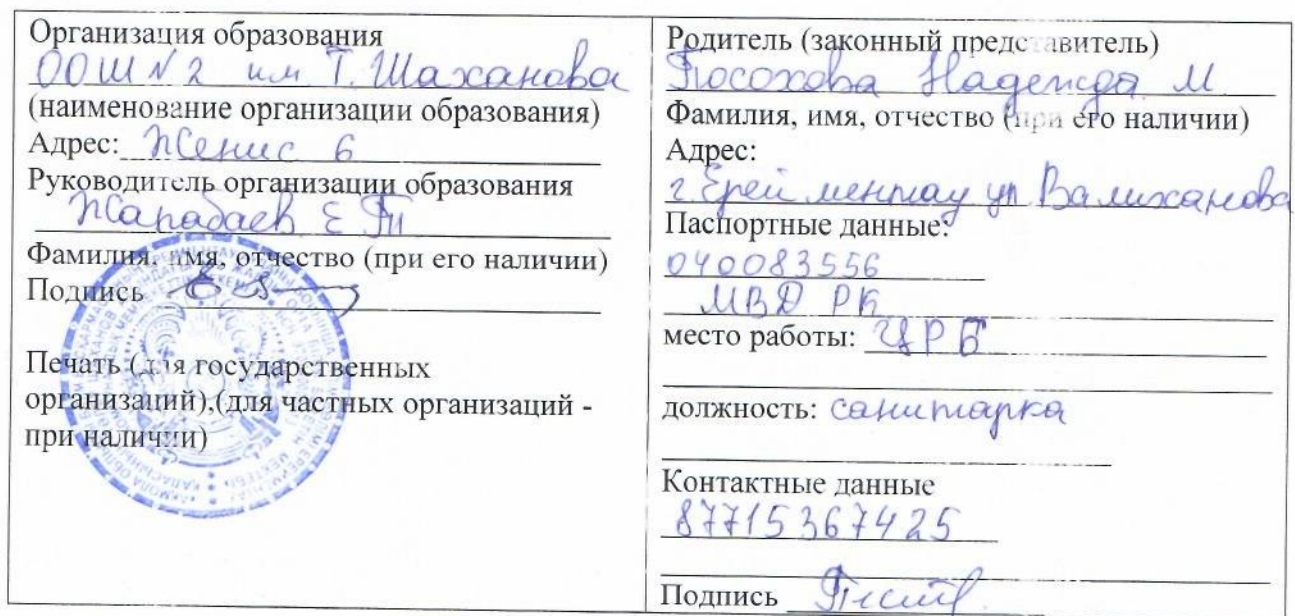 Организация образования
ООШ № 2 им Т. Шаханова
(наименование организации образования)
Адрес: Женис 6
Руководитель организации образования
Жарабаев Е
Фамилия, имя, отчество (при его наличии)
Подпись
Печать (для государственных
организаций),(для частных организаций -
при наличии)
Родитель (законный представитель)
Посохова Надежда М
Фамилия, имя, отчество (при его наличии)
Адрес:
г. Ерейментау ул Валиханова
Паспортные данные:
040083556
МВД РК
место работы: ЦРБ
должность: санитарка
Контактные данные
87715367425
Подпись